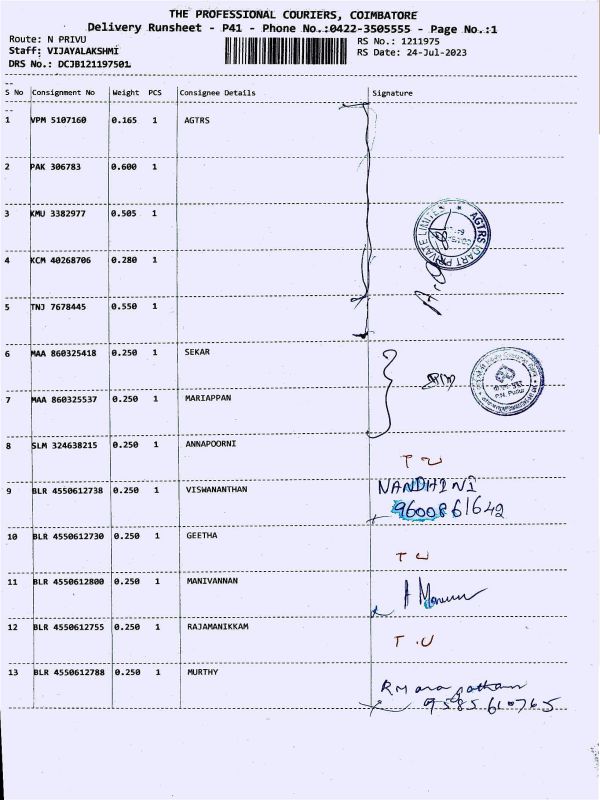 THE PROFESSIONAL COURIERS, COIMBATORE
Delivery Runsheet - P41 - Phone No.:0422-3505555 - Page No.:1
Route: N PRIVU RS No.: 1211975
Staff: VIJAYALAKSHMI RS Date: 24-Jul-2023
DRS No.: DCJB121197501
S No Consignment No Weight PCS Consignee Details Signature
1 VPM 5107160 0.165 1 AGTRS
2 PAK 306783 0.600 1
3 KMU 3382977 0.505 1
AGTRS
PRIVATE LIMITED
4 KCM 40268706 0.280 1
5 TNJ 7678445 0.550 1
6 MAA 860325418 0.250 1 SEKAR
7 MAA 860325537 0.250 1 MARIAPPAN
8 SLM 324638215 0.250 1 ANNAPOORNI
T U
9 BLR 4550612738 0.250 1 VISWANANTHAN NANDHINI
9600861642
10 BLR 4550612730 0.250 1 GEETHA
T U
11 BLR 4550612800 0.250 1 MANIVANNAN
12 BLR 4550612755 0.250 1 RAJAMANIKKAM
T.U
13 BLR 4550612788 0.250 1 MURTHY
9585610765